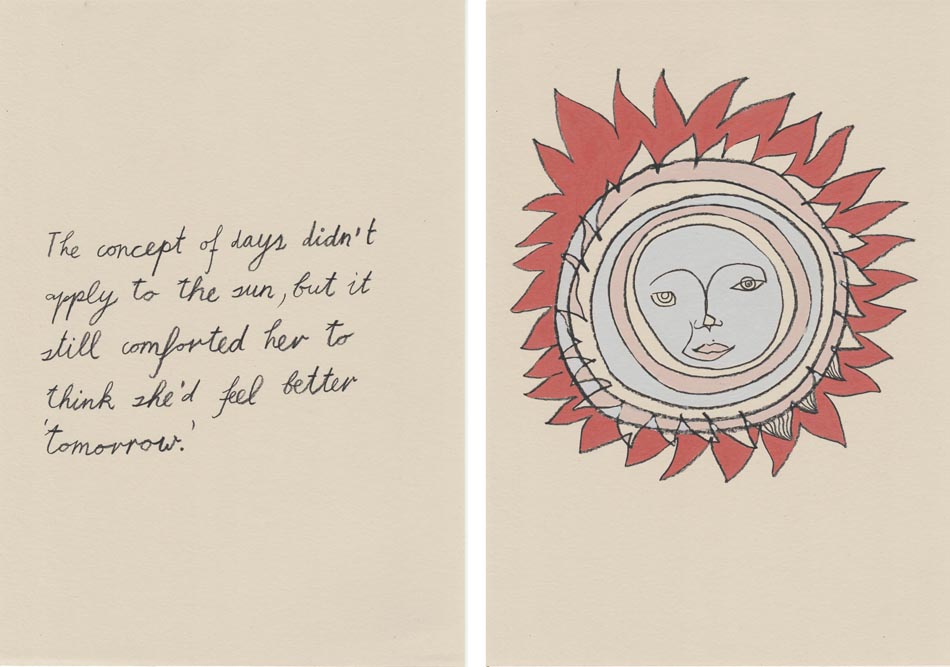 The concept of days didn't
apply to the sun, but it
still comforted her to
think she'd feel better
'tomorrow.'